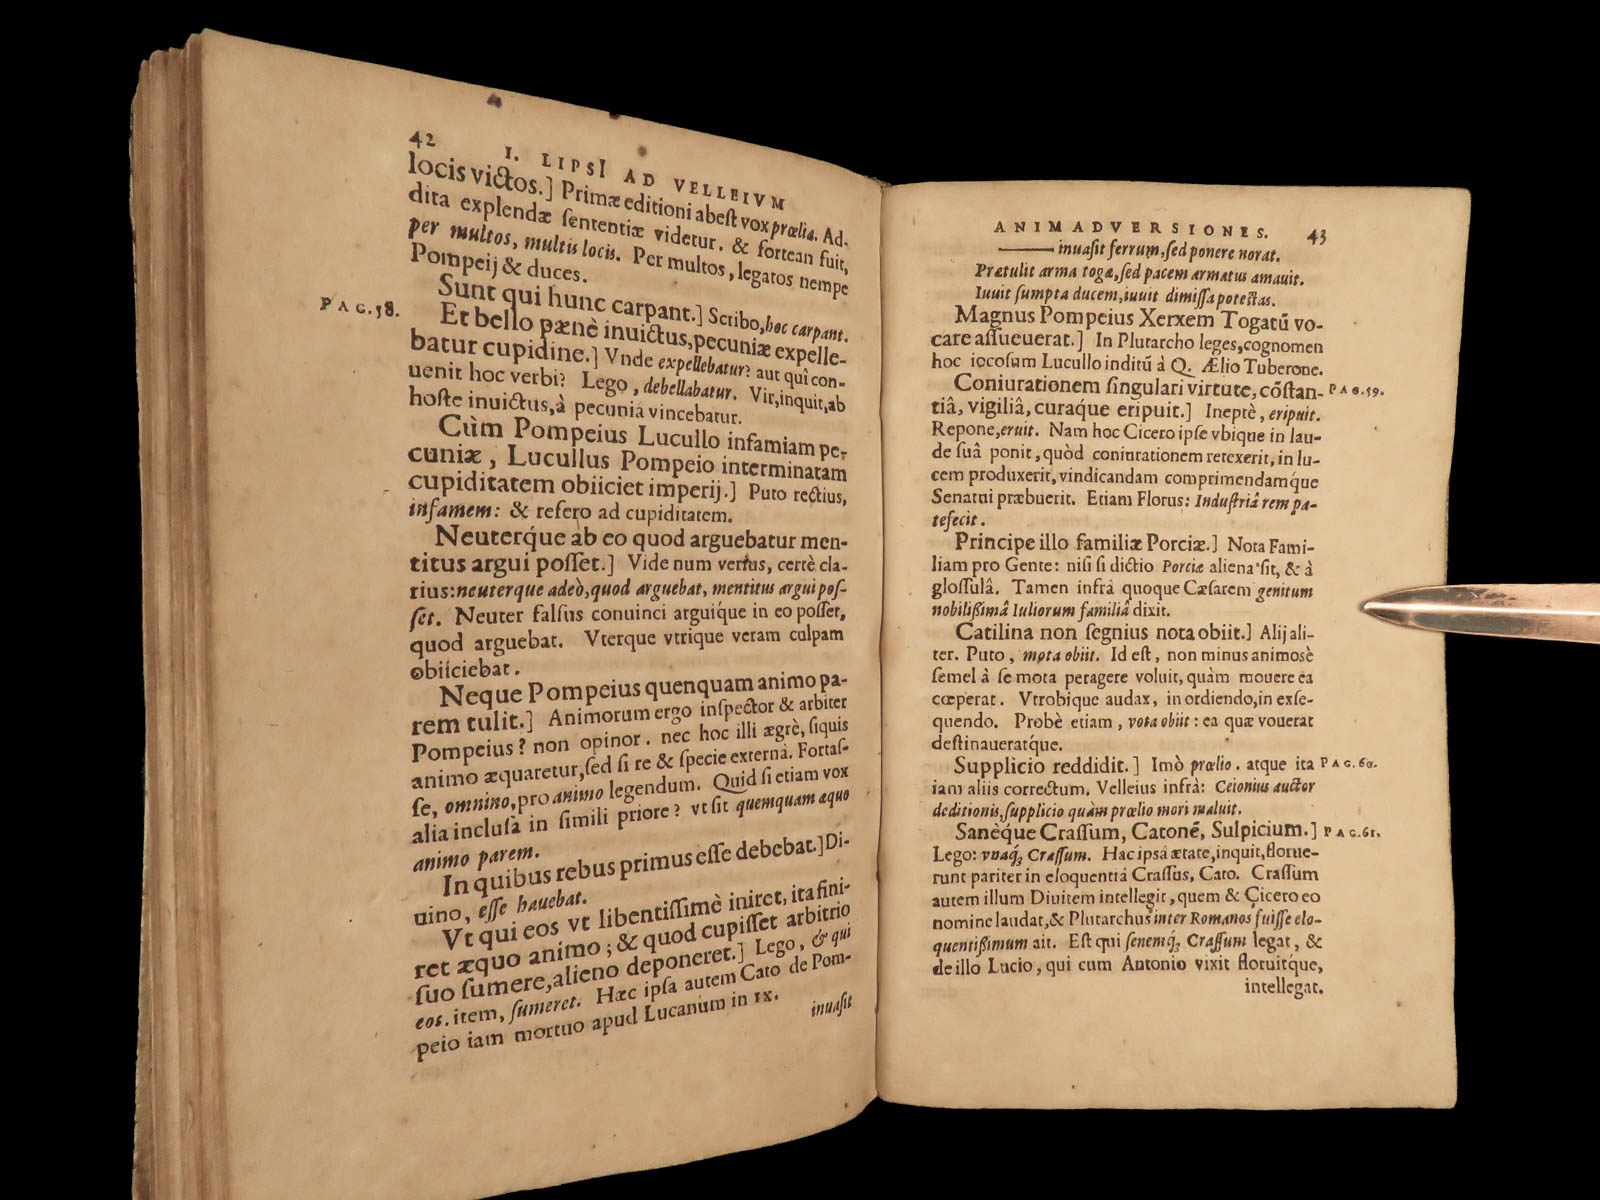 42
I. LIPSI AD VELLEIVM
locis victos.] Primæ editioni abeſt vox prœlia. Ad-
dita explendæ ſententiæ videtur. & fortean fuit,
per multos, multis locis. Per multos, legatos nempe
Pompeij & duces.
Sunt qui hunc carpant.] Scribo, hoc carpant.
PAG.58.
Et bello pænè inuictus, pecuniæ expelle-
batur cupidine.] Vnde expellebatur? aut quî con-
uenit hoc verbi? Lego, debellabatur. Vir, inquit, ab
hoſte inuictus, à pecuniâ vincebatur.
Cùm Pompeius Lucullo infamiam pe-
cuniæ, Lucullus Pompeio interminatam
cupiditatem obiiciet imperij.] Puto rectius,
infamem: & refero ad cupiditatem.
Neuterq́ue ab eo quod arguebatur men-
titus argui poſſet.] Vide num verſus, certè cla-
rius: neuterque adeò, quod arguebat, mentitus argui poſ-
ſet. Neuter falſius conuinci arguiq́ue in eo poſſet,
quod arguebat. Vterque vtrique veram culpam
obiiciebat.
Neque Pompeius quenquam animo pa-
rem tulit.] Animorum ergo inſpector & arbiter
Pompeius? non opinor. nec hoc illi ægrè, ſiquis
animo æquaretur, ſed ſi re & ſpecie externâ. Fortaſ-
ſe, omnino, pro animo legendum. Quid ſi etiam vox
alia incluſa in ſimili priore? vt ſit quemquam æquo
animo parem.
In quibus rebus primus eſſe debebat.] Di-
uino, eſſe hauebat.
Vt qui eos vt libentiſſimè iniret, ita fini-
ret æquo animo; & quod cupiſſet arbitrio
ſuo ſumere, alieno deponeret.] Lego, & qui
eos. item, ſumeret. Hæc ipſa autem Cato de Pom-
peio iam mortuo apud Lucanum in IX.
inuaſit
ANIMADVERSIONES. 43
inuaſit ferrum, ſed ponere norat.
Prætulit arma togæ, ſed pacem armatus amauit.
Iuuit ſumpta ducem, iuuit dimiſſa poteſtas.
Magnus Pompeius Xerxem Togatū vo-
care aſſueuerat.] In Plutarcho leges, cognomen
hoc iocoſum Lucullo inditū à Q. Ælio Tuberone.
Coniurationem ſingulari virtute, cōſtan-
PAG.59.
tiâ, vigiliâ, curaq́ue eripuit.] Ineptè, eripuit.
Repone, eruit. Nam hoc Cicero ipſe vbique in lau-
de ſuâ ponit, quòd coniurationem retexerit, in lu-
cem produxerit, vindicandam comprimendamq́ue
Senatui præbuerit. Etiam Florus: Induſtriâ rem pa-
tefecit.
Principe illo familiæ Porciæ.] Nota Fami-
liam pro Gente: niſi ſi dictio Porciæ aliena ſit, & à
gloſſulâ. Tamen infrà quoque Cæſarem genitum
nobilißimâ Iuliorum familiâ dixit.
Catilina non ſegnius nota obiit.] Alij ali-
ter. Puto, mota obiit. Id eſt, non minus animosè
ſemel à ſe mota peragere voluit, quàm mouere ea
cœperat. Vtrobique audax, in ordiendo, in exſe-
quendo. Probè etiam, vota obiit: ea quæ vouerat
deſtinaueratq́ue.
Supplicio reddidit.] Imò prœlio. atque ita
PAG.60.
iam aliis correctum. Velleius infrà: Ceionius auctor
deditionis, ſupplicio quàm prœlio mori maluit.
Sanèq́ue Craſſum, Catonē, Sulpicium.]
PAG.61.
Lego: vnaq́; Craſſum. Hac ipsâ ætate, inquit, florue-
runt pariter in eloquentiâ Craſſus, Cato. Craſſum
autem illum Diuitem intellegit, quem & Cicero eo
nomine laudat, & Plutarchus inter Romanos fuiſſe elo-
quentißimum ait. Eſt qui ſenemq́; Craſſum legat, &
de illo Lucio, qui cum Antonio vixit floruitq́ue,
intellegat.